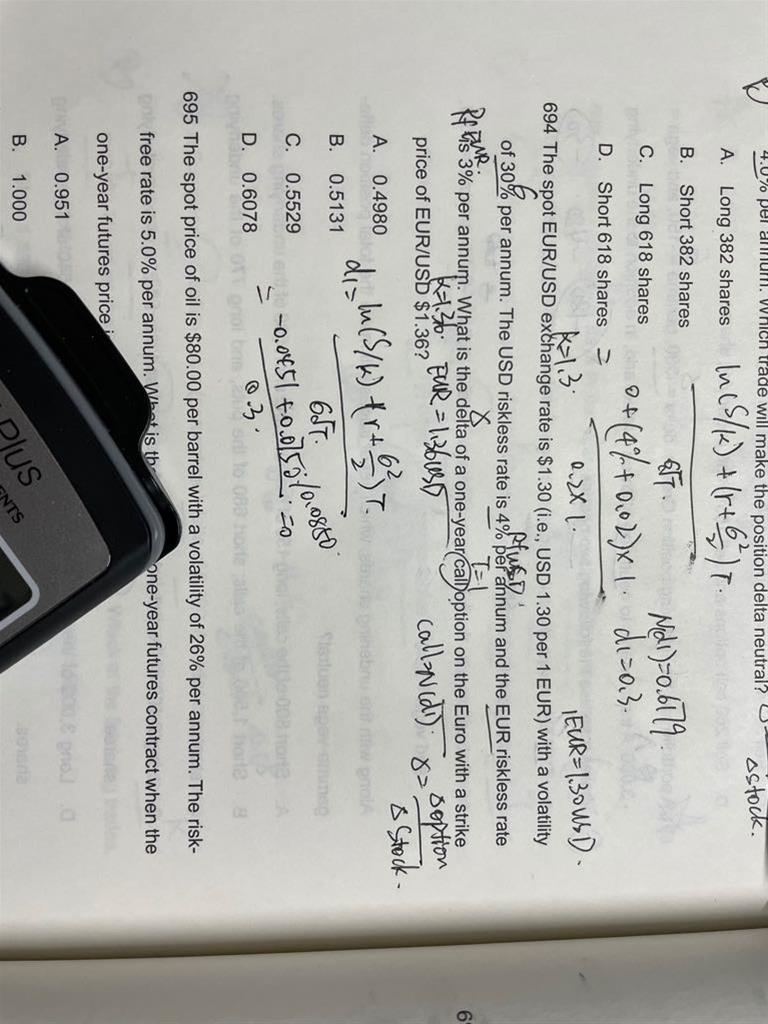 4.0% per annum. Which trade will make the position delta neutral?
Δstock.
A. Long 382 shares
ln(S/K) + (r+σ²/2)T.
B. Short 382 shares
σ√T.
N(d1)=0.6179
C. Long 618 shares
0+(4%+0.02)×1.
d1=0.3.
D. Short 618 shares
=
0.2×1.
K=1.3.
1EUR=1.30USD.
694 The spot EUR/USD exchange rate is $1.30 (i.e., USD 1.30 per 1 EUR) with a volatility
σ
Rf USD.
of 30% per annum. The USD riskless rate is 4% per annum and the EUR riskless rate
Rf EUR.
T=1
is 3% per annum. What is the delta of a one-year call option on the Euro with a strike
K=1.30.
price of EUR/USD $1.36?
EUR=1.36USD
call→N(d1).
γ= Δoption
Δstock.
A. 0.4980
d1= ln(S/K)+(r+σ²/2)T.
B. 0.5131
σ√T.
C. 0.5529
= -0.0451+0.0750/0.0850.
=0
D. 0.6078
0.3.
695 The spot price of oil is $80.00 per barrel with a volatility of 26% per annum. The risk-
free rate is 5.0% per annum. What is th one-year futures contract when the
one-year futures price i
A. 0.951
B. 1.000
PLUS
ENTS